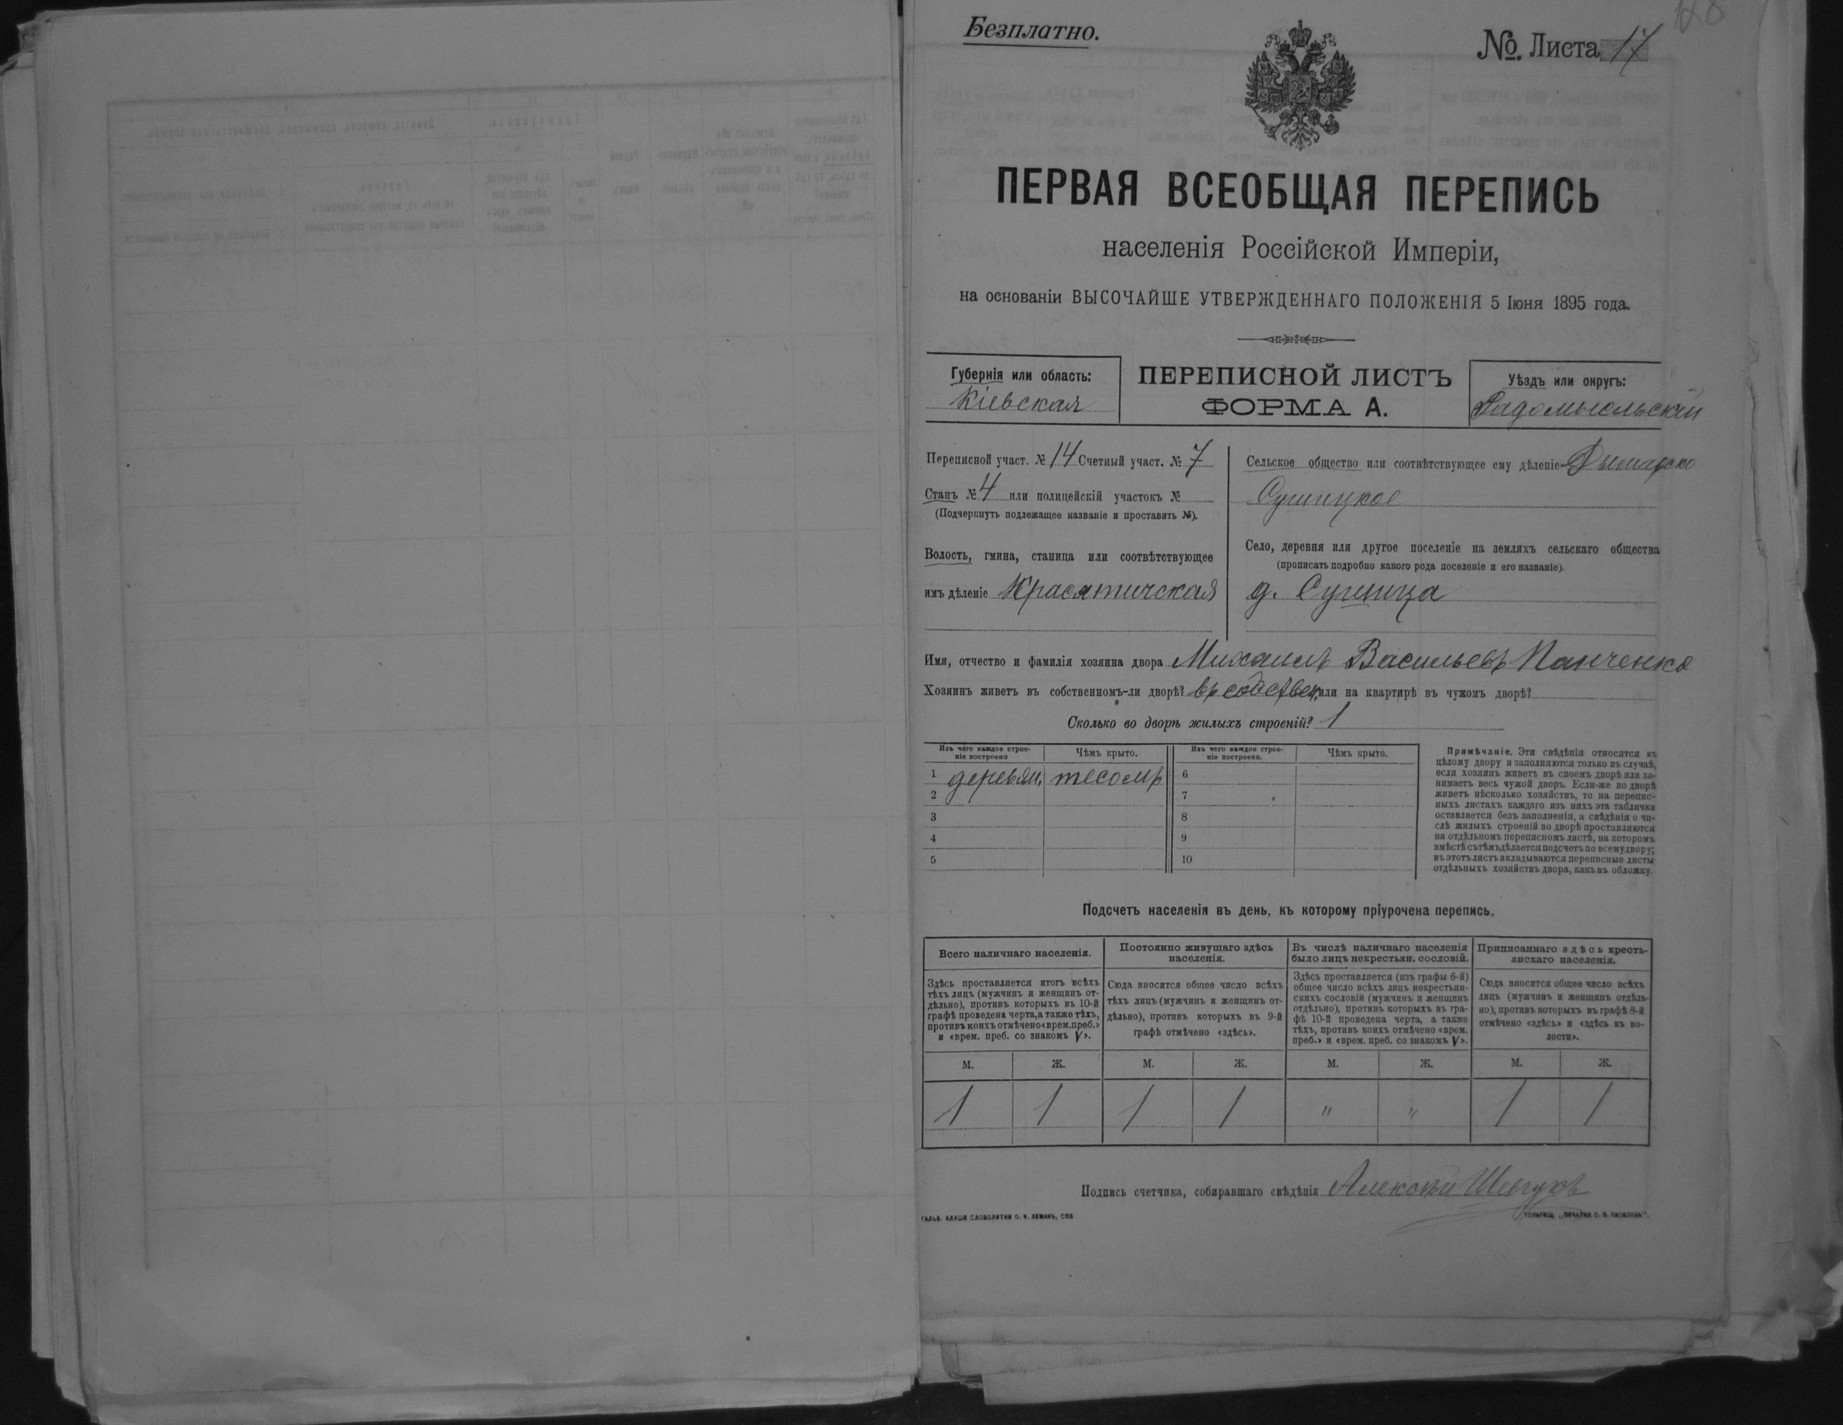 Безплатно.
№. Листа 17
ПЕРВАЯ ВСЕОБЩАЯ ПЕРЕПИСЬ
населенія Россійской Имперіи,
на основаніи ВЫСОЧАЙШЕ УТВЕРЖДЕННАГО ПОЛОЖЕНІЯ 5 Іюня 1895 года.
Губернія или область:
Кіевская
ПЕРЕПИСНОЙ ЛИСТЪ
ФОРМА А.
Уѣздъ или округъ:
Радомысльскій
Переписной участ. № 14 Счетный участ. № 7
Станъ № 4 или полицейскій участокъ №
(Подчеркнуть подлежащее названіе и проставить №).
Волость, гмина, станица или соотвѣтствующее
имъ дѣленіе Красятичская
Сельское общество или соотвѣтствующее ему дѣленіе
Сушицкое
Село, деревня или другое поселеніе на земляхъ сельскаго общества
(прописать подробно какого рода поселеніе и его названіе)
д. Сушица
Имя, отчество и фамилія хозяина двора Михаилъ Васильевъ Панченко
Хозяинъ живетъ въ собственномъ-ли дворѣ? въ собствен. или на квартирѣ въ чужомъ дворѣ?
Сколько во дворѣ жилыхъ строеній? 1
Изъ чего каждое строе-
ніе построено
Чѣмъ крыто.
Изъ чего каждое строе-
ніе построено.
Чѣмъ крыто.
1 деревян. тесомъ 6
2 7
3 8
4 9
5 10
Примѣчаніе. Эти свѣдѣнія относятся къ
цѣлому двору и заполняются только въ случаѣ,
если хозяинъ живетъ въ своемъ дворѣ или за-
нимаетъ весь чужой дворъ. Если-же во дворѣ
живетъ нѣсколько хозяйствъ, то на перепис-
ныхъ листахъ каждаго изъ нихъ эта табличка
оставляется безъ заполненія, а свѣдѣнія о чи-
слѣ жилыхъ строеній во дворѣ проставляются
на отдѣльномъ переписномъ листѣ, на которомъ
вмѣстѣ съ тѣмъ дѣлается подсчетъ по всему двору;
въ этотъ листъ вкладываются переписные листы
отдѣльныхъ хозяйствъ двора, какъ въ обложку.
Подсчетъ населенія въ день, къ которому пріурочена перепись.
Всего наличнаго населенія.
Здѣсь проставляется итогъ всѣхъ
тѣхъ лицъ (мужчинъ и женщинъ от-
дѣльно), противъ которыхъ въ 10-й
графѣ проведена черта, а также тѣхъ,
противъ коихъ отмѣчено «врем. преб.»
и «врем. преб. со знакомъ V».
Постоянно живущаго здѣсь
населенія.
Сюда вносится общее число всѣхъ
тѣхъ лицъ (мужчинъ и женщинъ от-
дѣльно), противъ которыхъ въ 9-й
графѣ отмѣчено «здѣсь».
Въ числѣ наличнаго населенія
было лицъ некрестьян. сословій.
Здѣсь проставляется (изъ графы 6-й)
общее число всѣхъ лицъ некрестьян-
скихъ сословій (мужчинъ и женщинъ
отдѣльно), противъ которыхъ въ гра-
фѣ 10-й проведена черта, а также
тѣхъ, противъ коихъ отмѣчено «врем.
преб.» и «врем. преб. со знакомъ V».
Приписаннаго здѣсь кресть-
янскаго населенія.
Сюда вносится общее число всѣхъ
лицъ (мужчинъ и женщинъ отдѣль-
но), противъ которыхъ въ графѣ 8-й
отмѣчено «здѣсь» и «здѣсь къ во-
лости».
М. Ж. М. Ж. М. Ж. М. Ж.
1 1 1 1 " " 1 1
Подпись счетчика, собиравшаго свѣдѣнія Алексѣй Шевчукъ
ГАЛЬВ. КЛИШЕ СЛОВОЛИТНИ О. И. ЛЕМАНЪ, СПБ
ТОВАРИЩ. „ПЕЧАТНЯ С. П. ЯКОВЛЕВА".